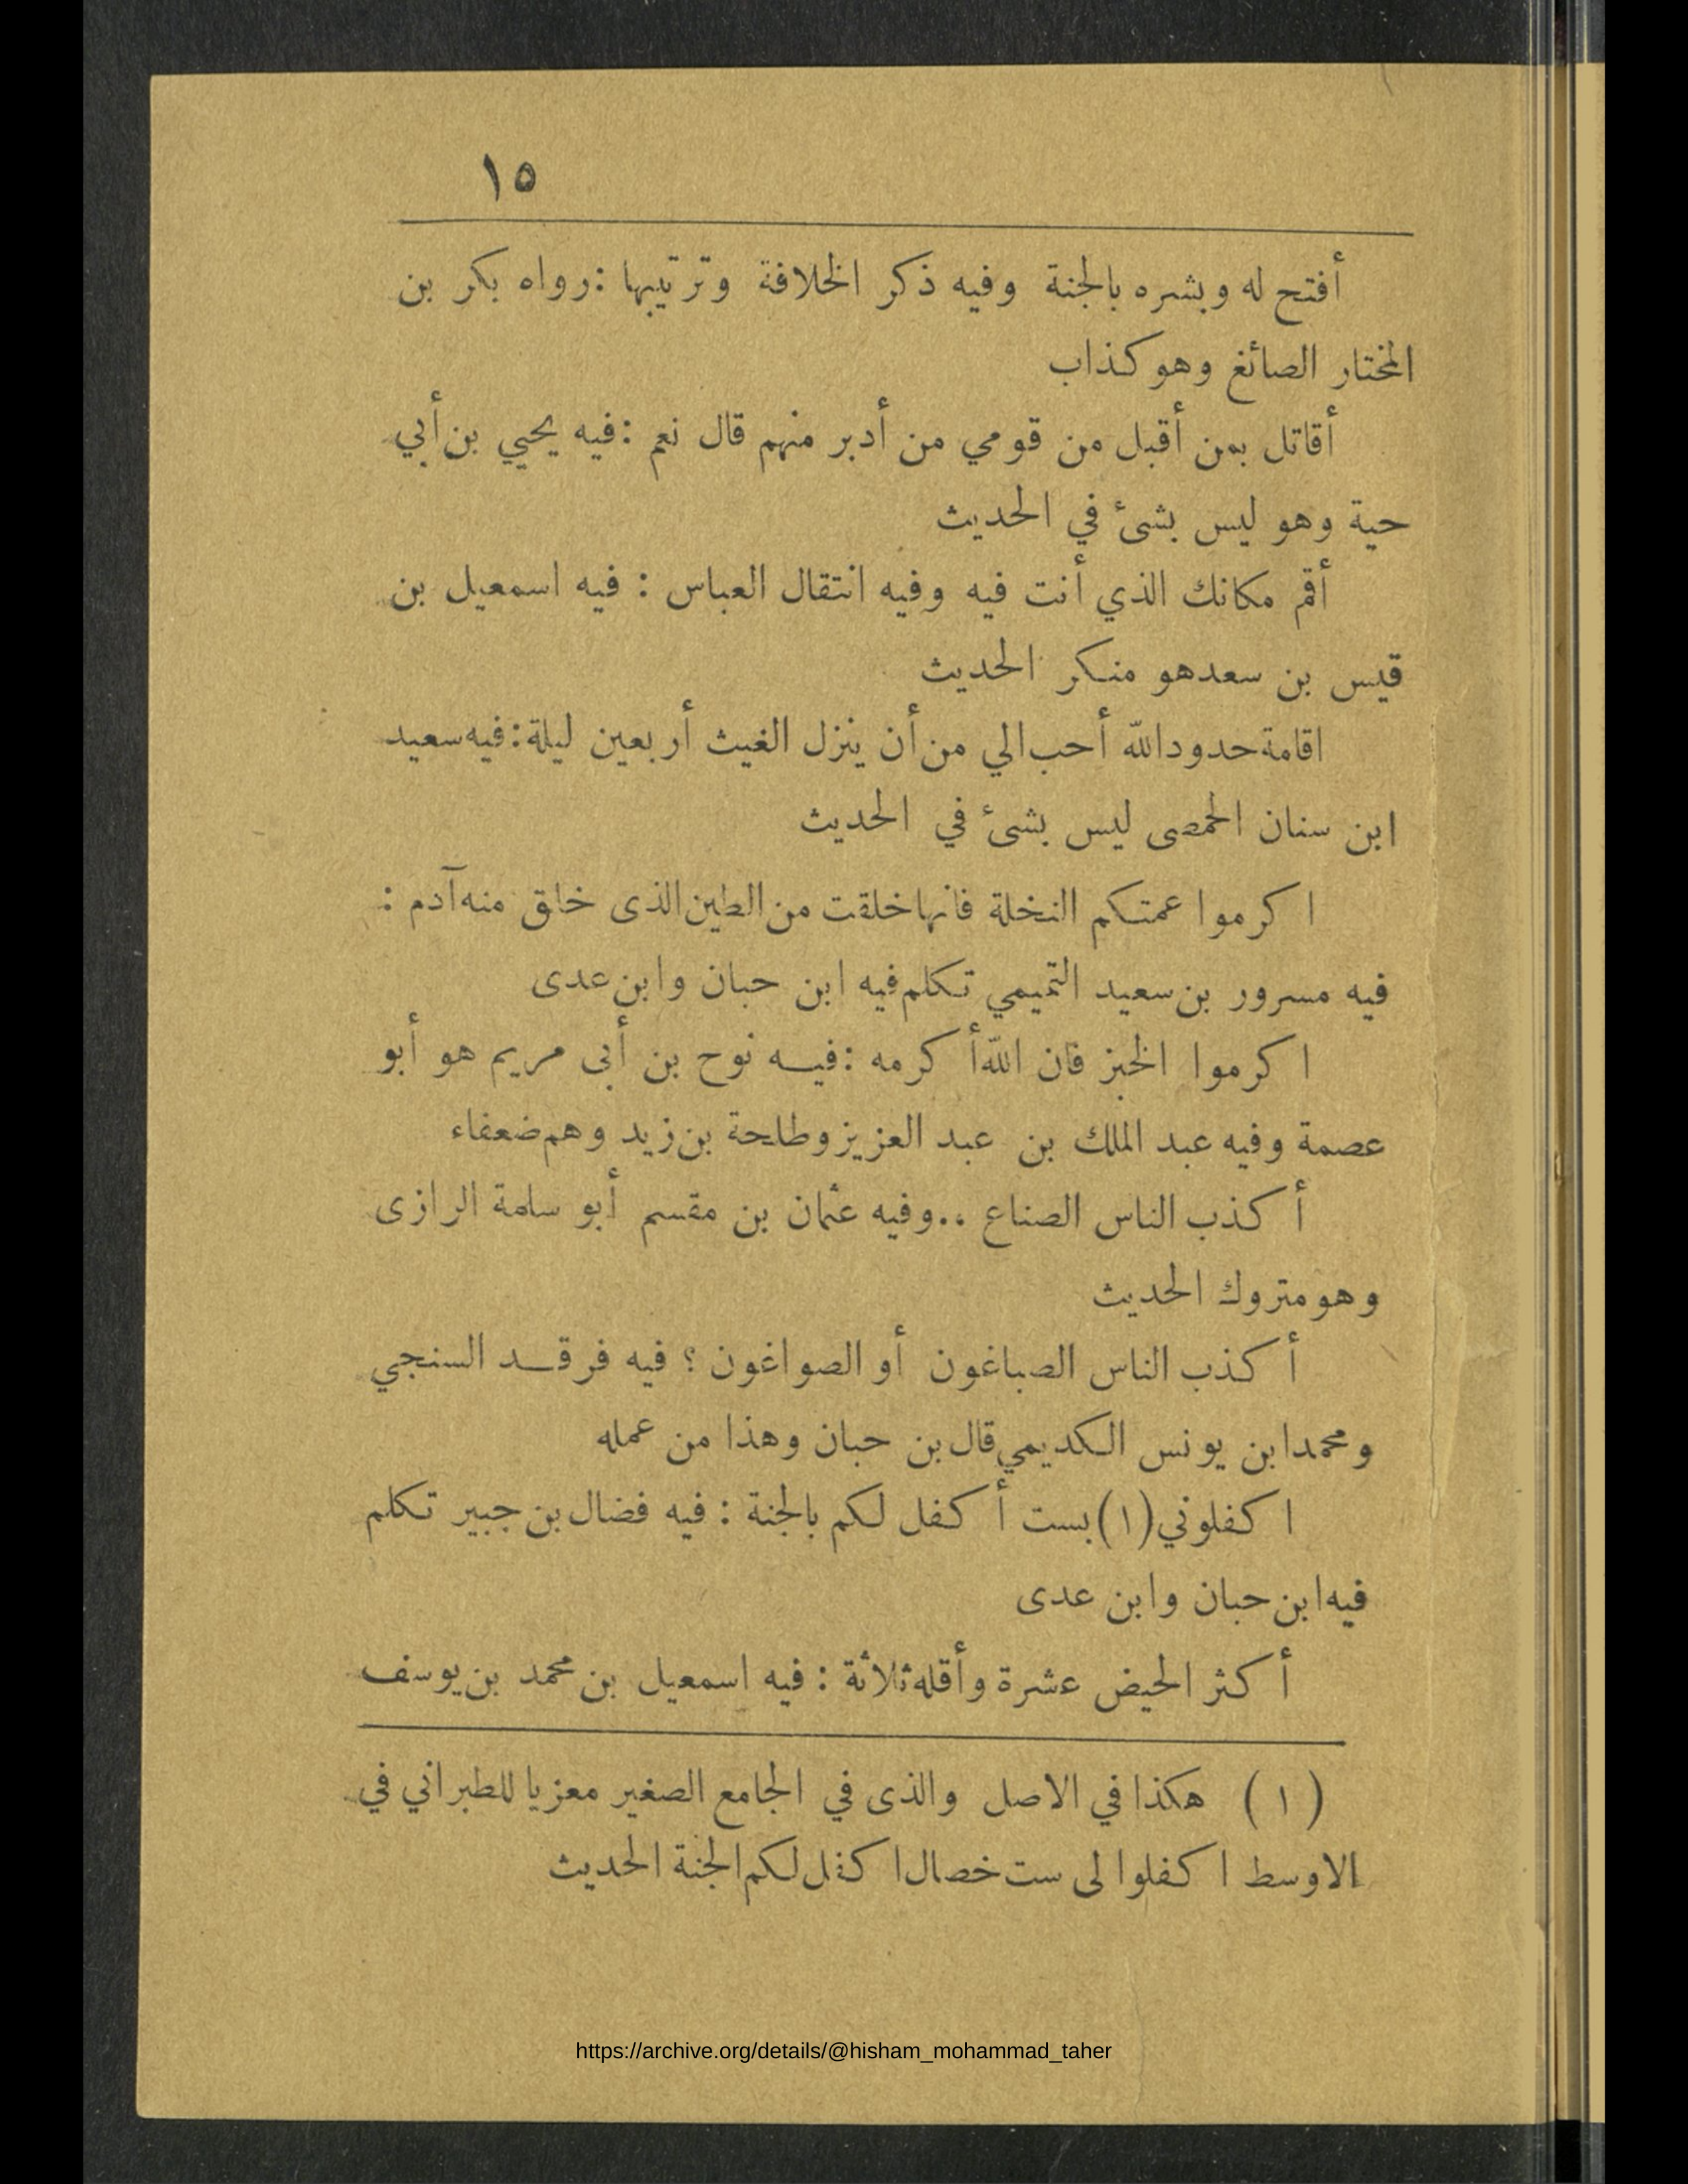 ١٥
أفتح له وبشره بالجنة وفيه ذكر الخلافة وترتيبها : رواه بكر بن
المختار الصائغ وهو كذاب
أقاتل بمن أقبل من قومي من أدبر منهم قال نعم : فيه يحيي بن أبي
حية وهو ليس بشىء في الحديث
أقم مكانك الذي أنت فيه وفيه انتقال العباس : فيه اسمعيل بن
قيس بن سعد هو منكر الحديث
اقامة حدود الله أحب الي من أن ينزل الغيث أربعين ليلة : فيه سعيد
ابن سنان الحمصى ليس بشىء في الحديث
اكرموا عمتكم النخلة فانها خلقت من الطين الذى خلق منه آدم :
فيه مسرور بن سعيد التميمي تكلم فيه ابن حبان وابن عدى
اكرموا الخبز فان الله أكرمه : فيه نوح بن أبى مريم هو أبو
عصمة وفيه عبد الملك بن عبد العزيز وطلحة بن زيد وهم ضعفاء
أكذب الناس الصناع .. وفيه عثمان بن مقسم أبو سلمة الرازى
وهو متروك الحديث
أكذب الناس الصباغون أو الصواغون ؟ فيه فرقد السنجي
ومحمد ابن يونس الكديمي قال بن حبان وهذا من عمله
اكفلوني (١) بست أكفل لكم بالجنة : فيه فضال بن جبير تكلم
فيه ابن حبان وابن عدى
أكثر الحيض عشرة وأقله ثلاثة : فيه اسمعيل بن محمد بن يوسف
(١) هكذا في الاصل والذى في الجامع الصغير معزيا للطبراني في
الاوسط اكفلوا لى ست خصال اكفل لكم الجنة الحديث
https://archive.org/details/@hisham_mohammad_taher